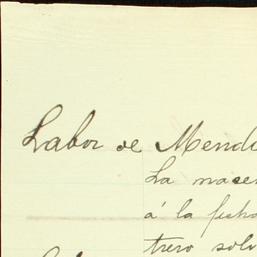 Labor de Mend
La mace
á la fecha
trero solv